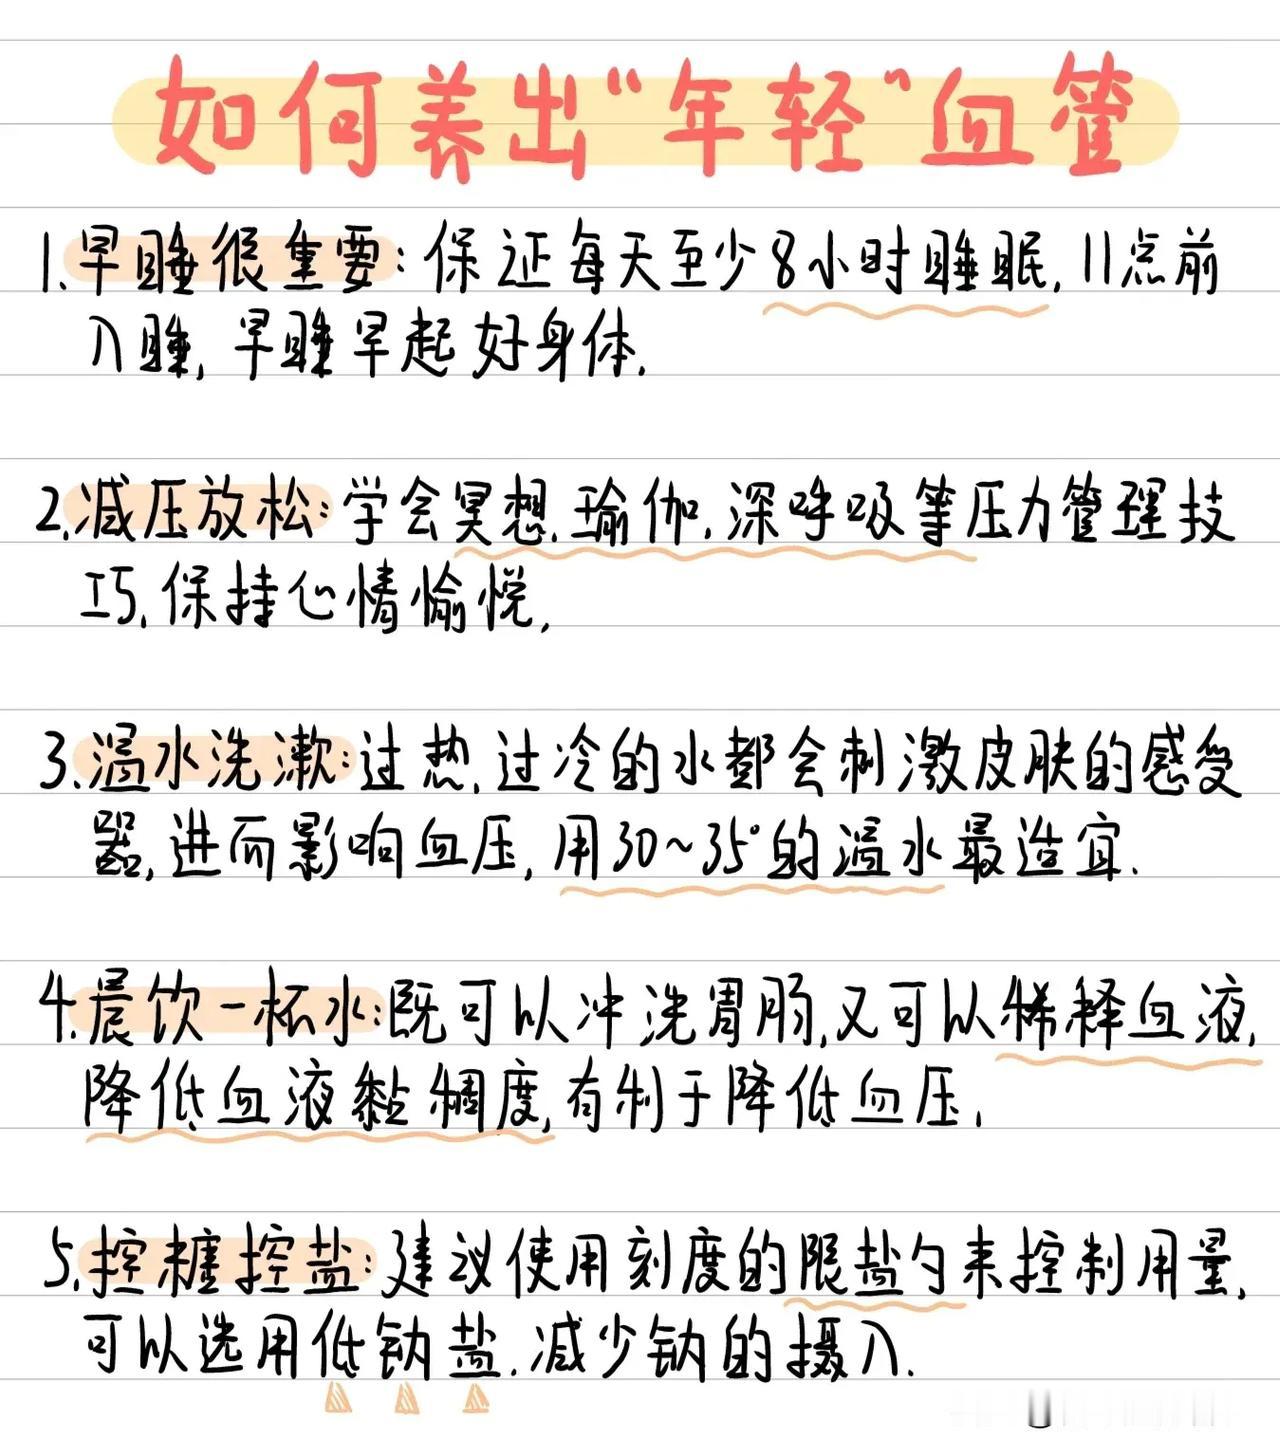 如何养出“年轻”血管
1.早睡很重要:保证每天至少8小时睡眠,11点前
入睡,早睡早起好身体.
2.减压放松:学会冥想.瑜伽.深呼吸等压力管理技
巧,保持心情愉悦,
3.温水洗漱:过热.过冷的水都会刺激皮肤的感受
器,进而影响血压,用30~35°的温水最适宜.
4.晨饮一杯水:既可以冲洗胃肠,又可以稀释血液,
降低血液黏稠度,有利于降低血压,
5.控糖控盐:建议使用刻度的限盐勺来控制用量,
可以选用低钠盐.减少钠的摄入.